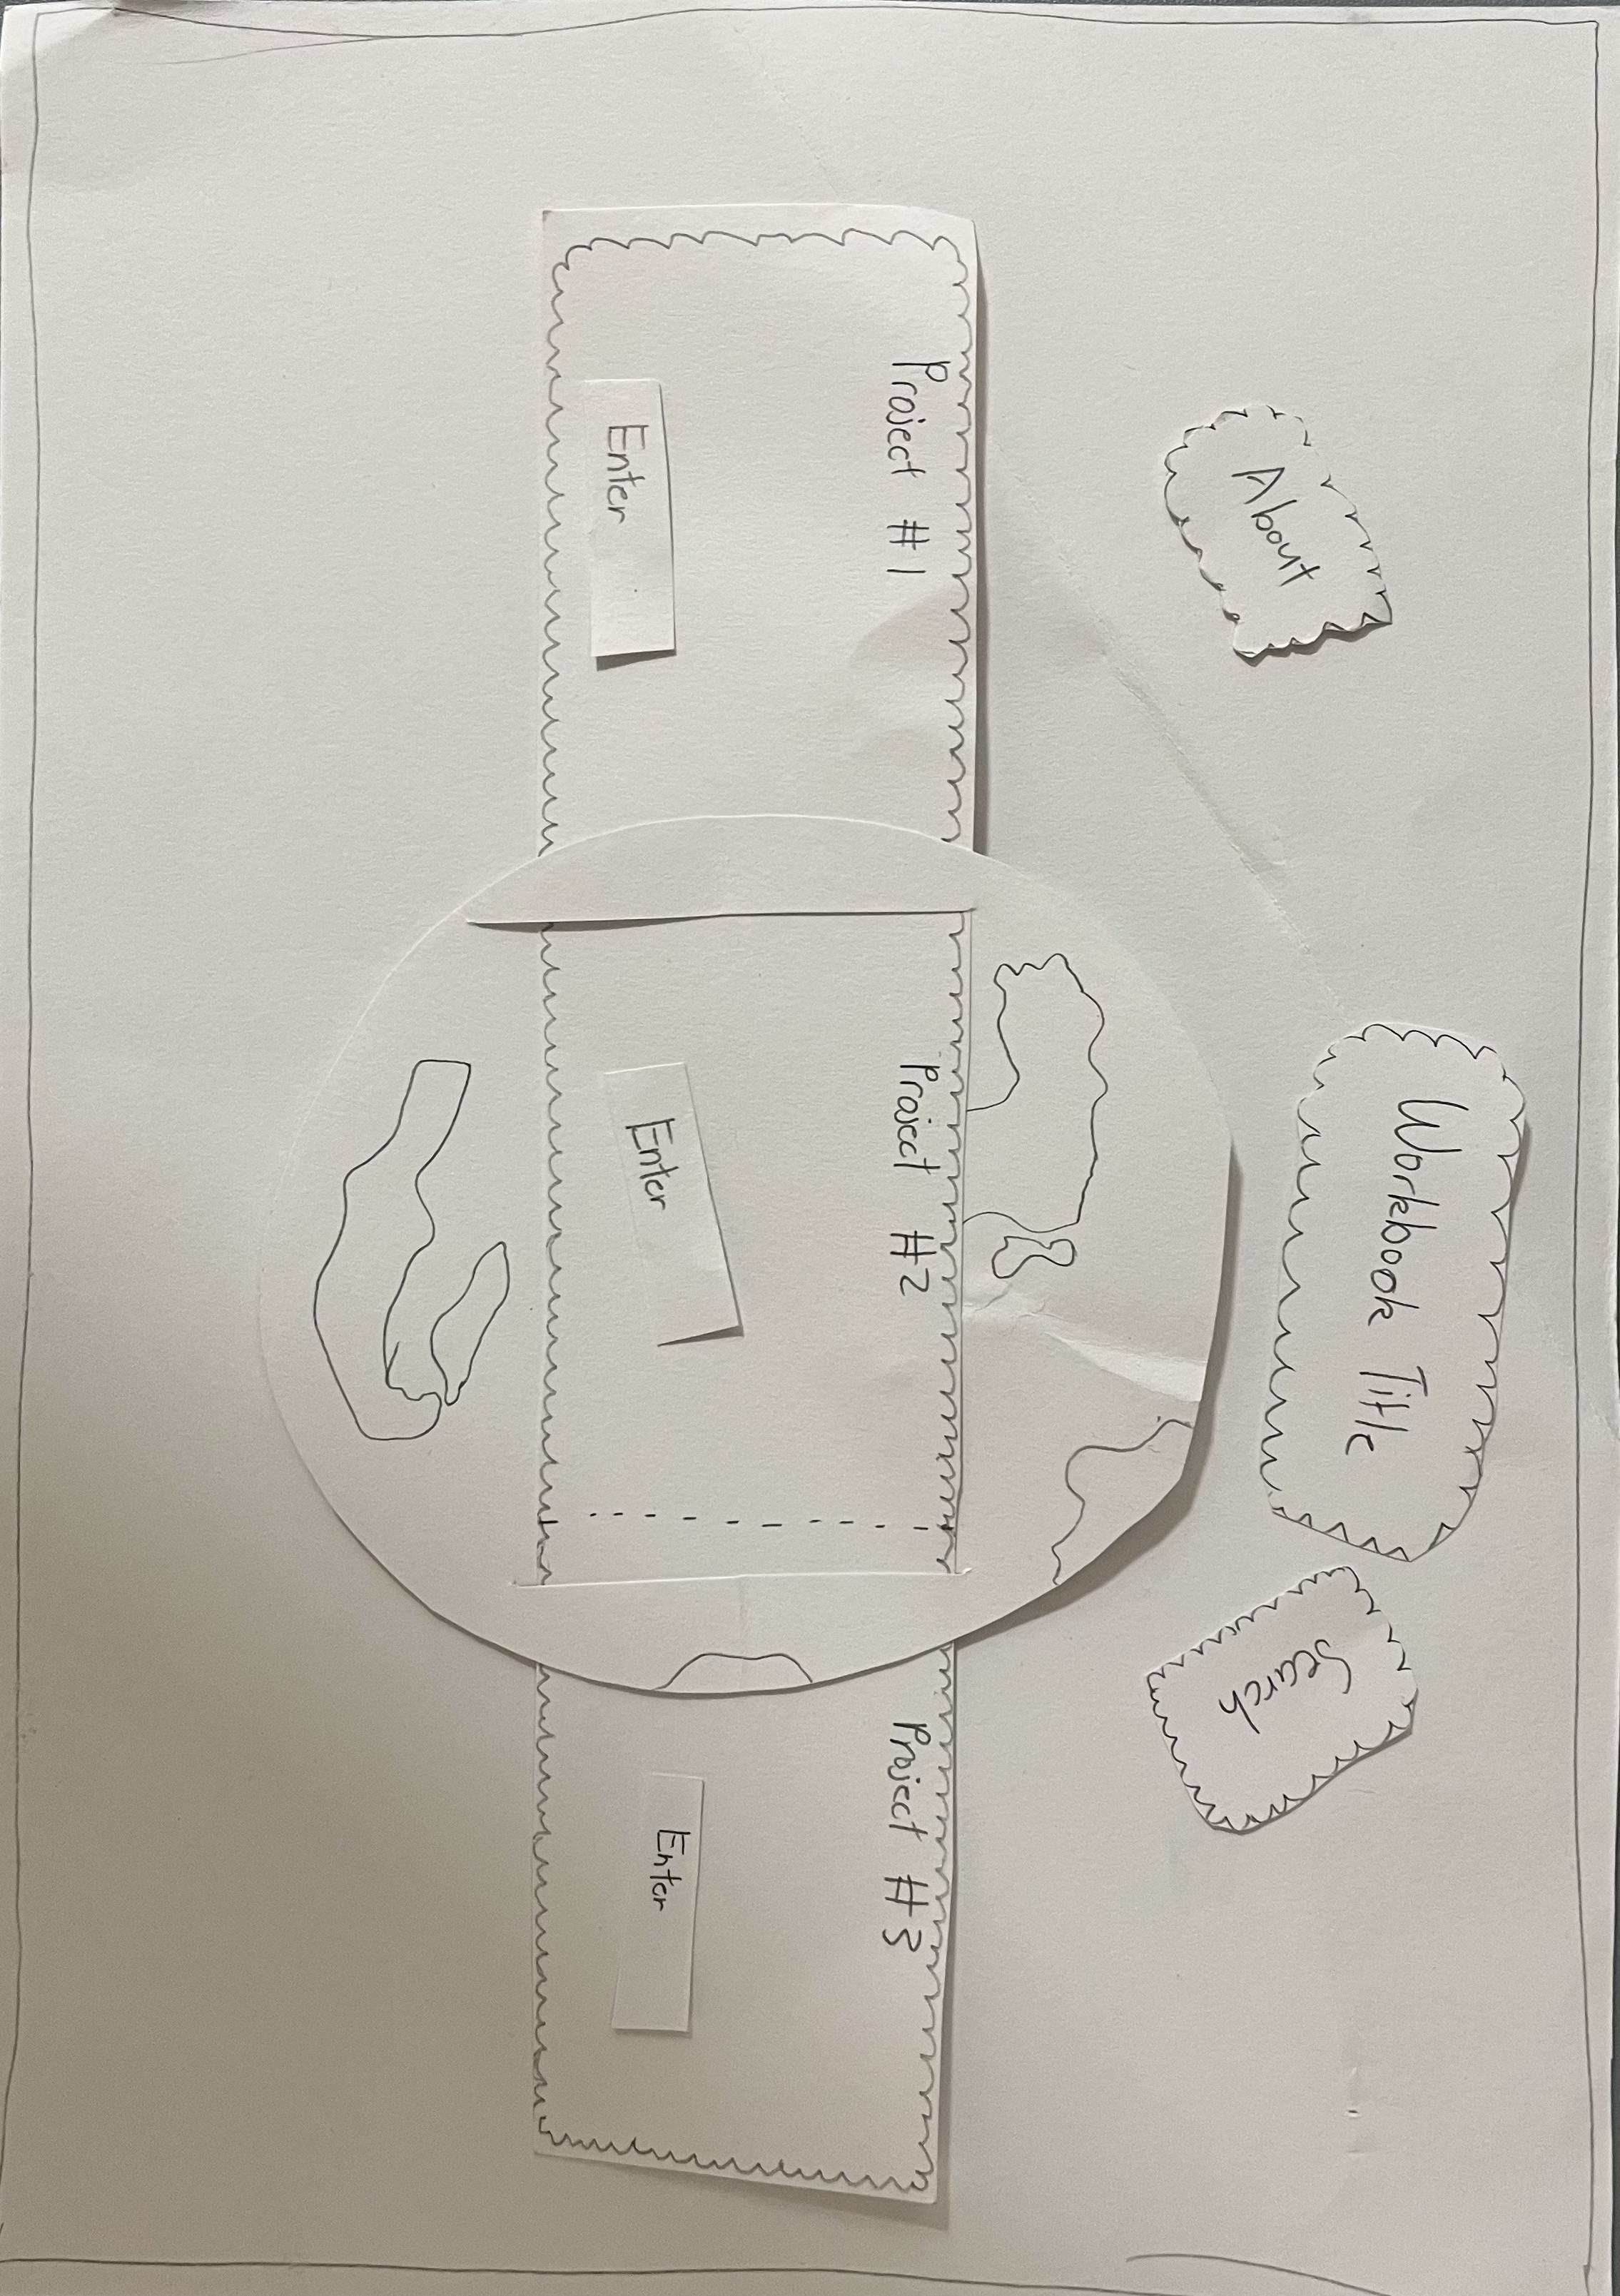 Workbook Title
About
Search
Project #1
Enter
Project #2
Enter
Project #3
Enter